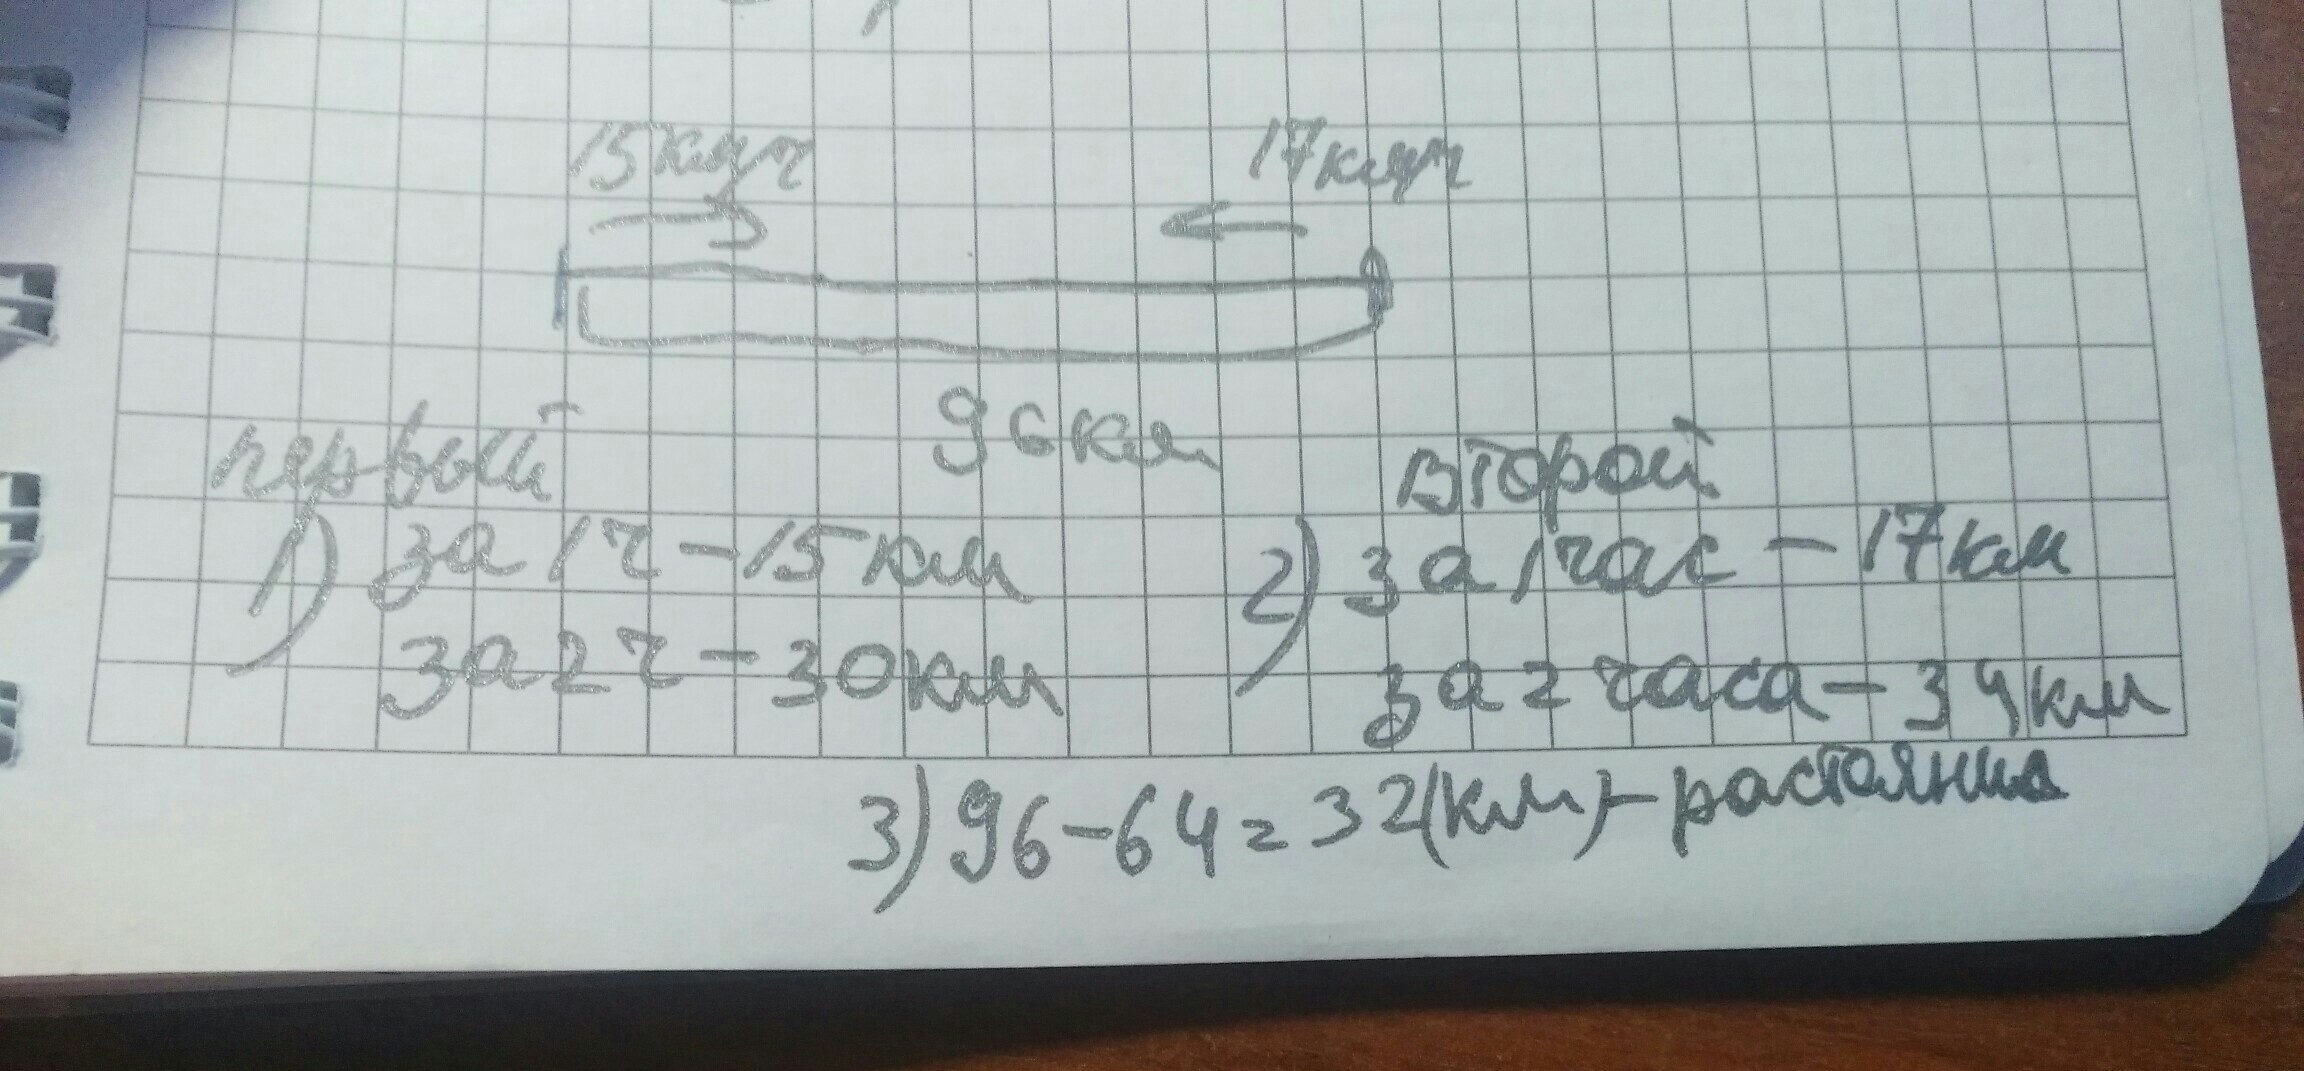 15км/ч 17км/ч
96км
первый второй
1) за 1ч - 15 км 2) за 1час - 17км
за 2ч - 30км за 2 часа - 34км
3) 96-64=32(км) - растаяния